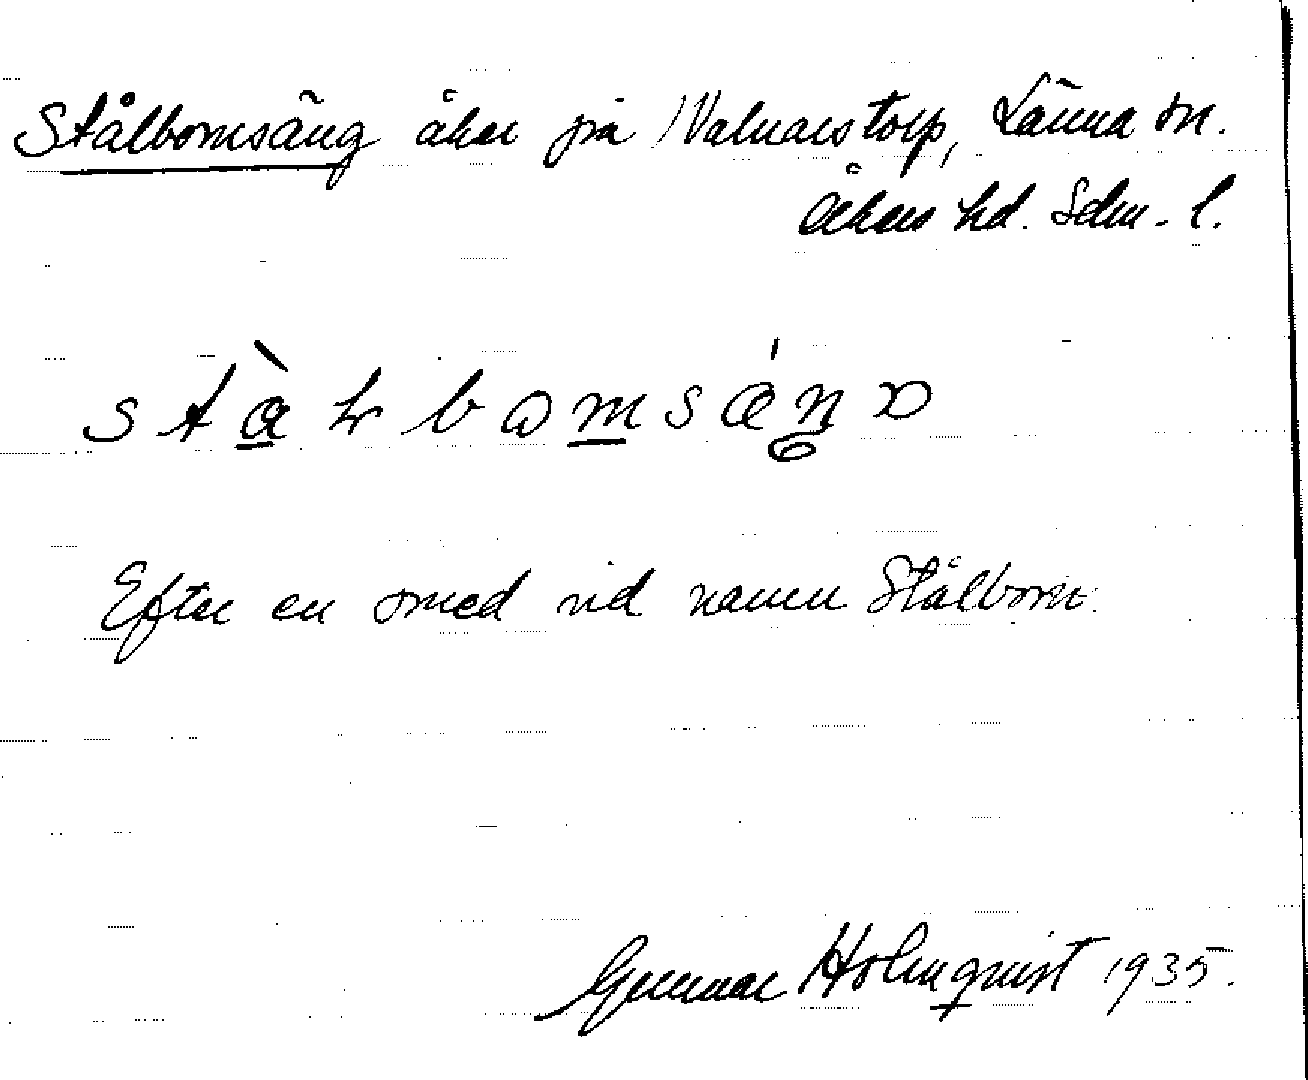 Stålbomsäng åker på Valnarstorp, Länna sn.
Åkers hd. Sdm. l.
Efter en smed vid namn Stålbom.
Gunnar Holmqvist 1935.